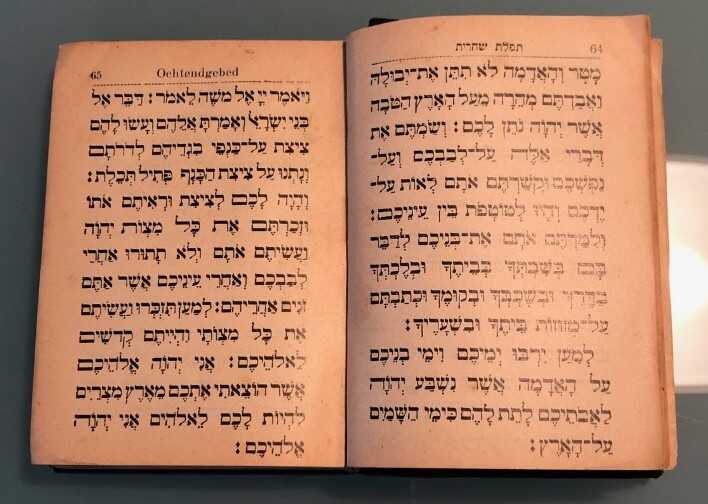 תפלת שחרית 64
מָטָר וְהָאֲדָמָה לֹא תִתֵּן אֶת־יְבוּלָהּ
וַאֲבַדְתֶּם מְהֵרָה מֵעַל הָאָרֶץ הַטֹּבָה
אֲשֶׁר יְהוָֹה נֹתֵן לָכֶם: וְשַׂמְתֶּם אֶת
דְּבָרַי אֵלֶּה עַל־לְבַבְכֶם וְעַל־
נַפְשְׁכֶם וּקְשַׁרְתֶּם אֹתָם לְאוֹת עַל־
יֶדְכֶם וְהָיוּ לְטוֹטָפֹת בֵּין עֵינֵיכֶם:
וְלִמַּדְתֶּם אֹתָם אֶת־בְּנֵיכֶם לְדַבֵּר
בָּם בְּשִׁבְתְּךָ בְּבֵיתֶךָ וּבְלֶכְתְּךָ
בַדֶּרֶךְ וּבְשָׁכְבְּךָ וּבְקוּמֶךָ וּכְתַבְתָּם
עַל־מְזוּזוֹת בֵּיתֶךָ וּבִשְׁעָרֶיךָ:
לְמַעַן יִרְבּוּ יְמֵיכֶם וִימֵי בְנֵיכֶם
עַל הָאֲדָמָה אֲשֶׁר נִשְׁבַּע יְהוָֹה
לַאֲבֹתֵיכֶם לָתֵת לָהֶם כִּימֵי הַשָּׁמַיִם
עַל־הָאָרֶץ:
65 Ochtendgebed
וַיֹּאמֶר יְיָ אֶל מֹשֶׁה לֵּאמֹר: דַּבֵּר אֶל
בְּנֵי יִשְׂרָאֵל וְאָמַרְתָּ אֲלֵהֶם וְעָשׂוּ לָהֶם
צִיצִת עַל־כַּנְפֵי בִגְדֵיהֶם לְדֹרֹתָם
וְנָתְנוּ עַל צִיצִת הַכָּנָף פְּתִיל תְּכֵלֶת:
וְהָיָה לָכֶם לְצִיצִת וּרְאִיתֶם אֹתוֹ
וּזְכַרְתֶּם אֶת כָּל מִצְוֹת יְהוָֹה
וַעֲשִׂיתֶם אֹתָם וְלֹא תָתוּרוּ אַחֲרֵי
לְבַבְכֶם וְאַחֲרֵי עֵינֵיכֶם אֲשֶׁר אַתֶּם
זֹנִים אַחֲרֵיהֶם: לְמַעַן תִּזְכְּרוּ וַעֲשִׂיתֶם
אֶת כָּל מִצְוֹתָי וִהְיִיתֶם קְדֹשִׁים
לֵאלֹהֵיכֶם: אֲנִי יְהוָֹה אֱלֹהֵיכֶם
אֲשֶׁר הוֹצֵאתִי אֶתְכֶם מֵאֶרֶץ מִצְרַיִם
לִהְיוֹת לָכֶם לֵאלֹהִים אֲנִי יְהוָֹה
אֱלֹהֵיכֶם: